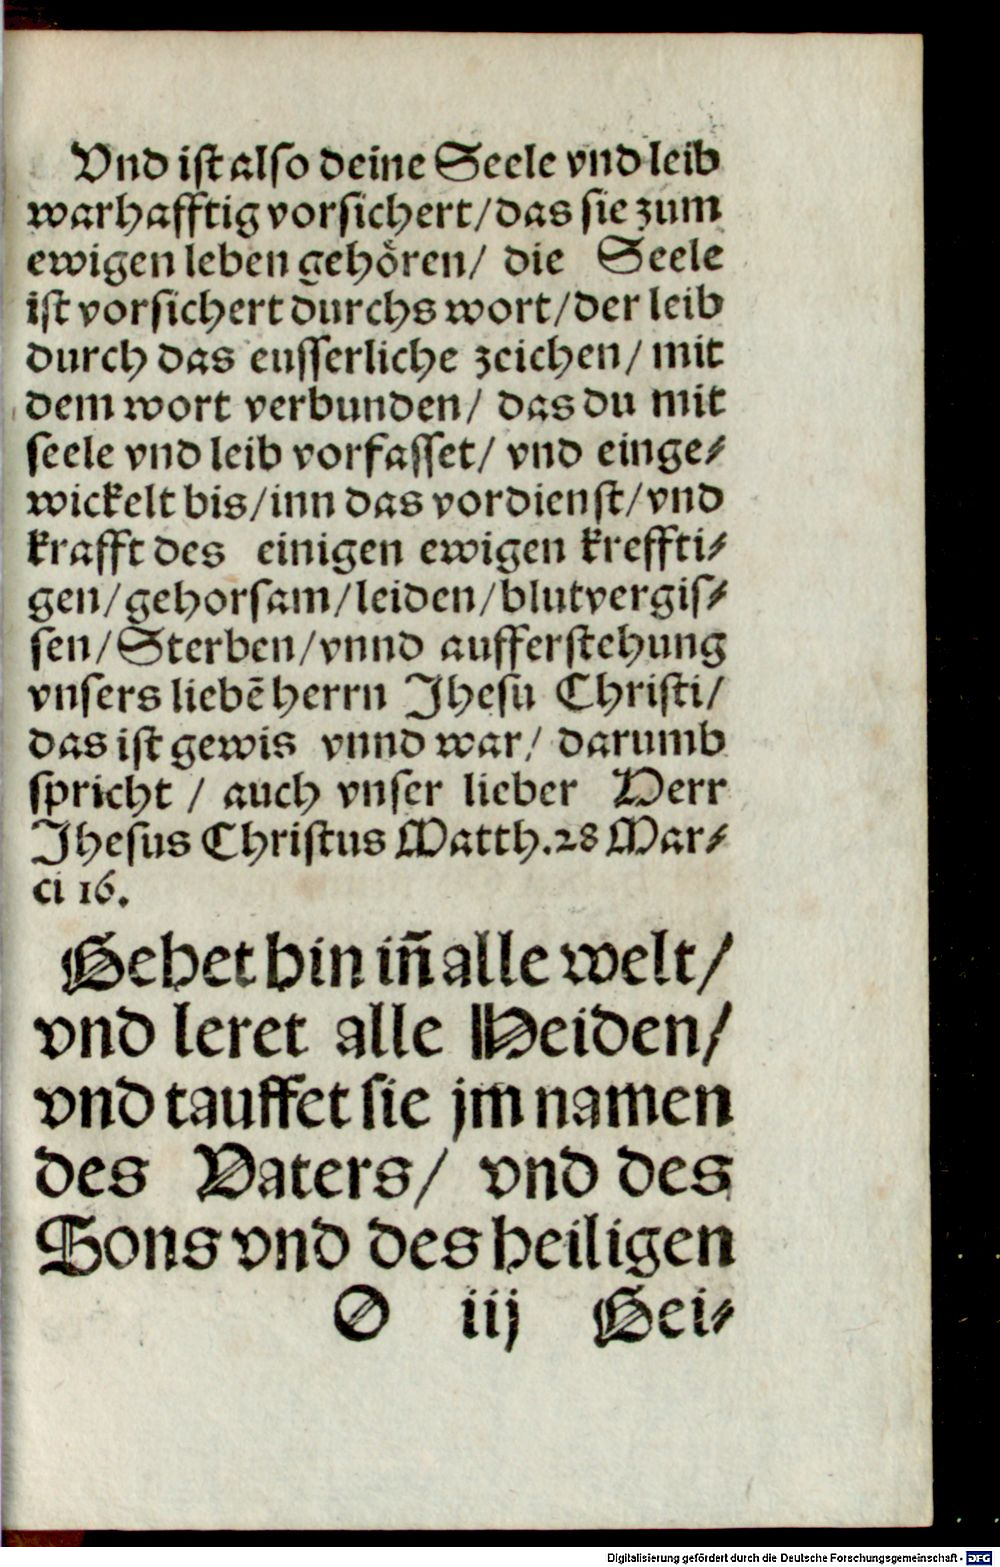 Vnd ist also deine Seele vnd leib
warhafftig vorsichert/das sie zum
ewigen leben gehoͤren/ die Seele
ist vorsichert durchs wort/der leib
durch das eusserliche zeichen/ mit
dem wort verbunden/ das du mit
seele vnd leib vorfasset/ vnd einge⸗
wickelt bis/inn das vordienst/vnd
krafft des einigen ewigen kreffti⸗
gen/gehorsam/leiden/blutvergis⸗
sen/Sterben/vnnd aufferstehung
vnsers liebē herrn Jhesu Christi/
das ist gewis vnnd war/ darumb
spricht / auch vnser lieber Herr
Jhesus Christus Matth.28 Mar⸗
ci 16.
Gehet hin in̄ alle welt/
vnd leret alle Heiden/
vnd tauffet sie jm namen
des Vaters/ vnd des
Sons vnd des heiligen
O iij Gei⸗
Digitalisierung gefördert durch die Deutsche Forschungsgemeinschaft - DFG